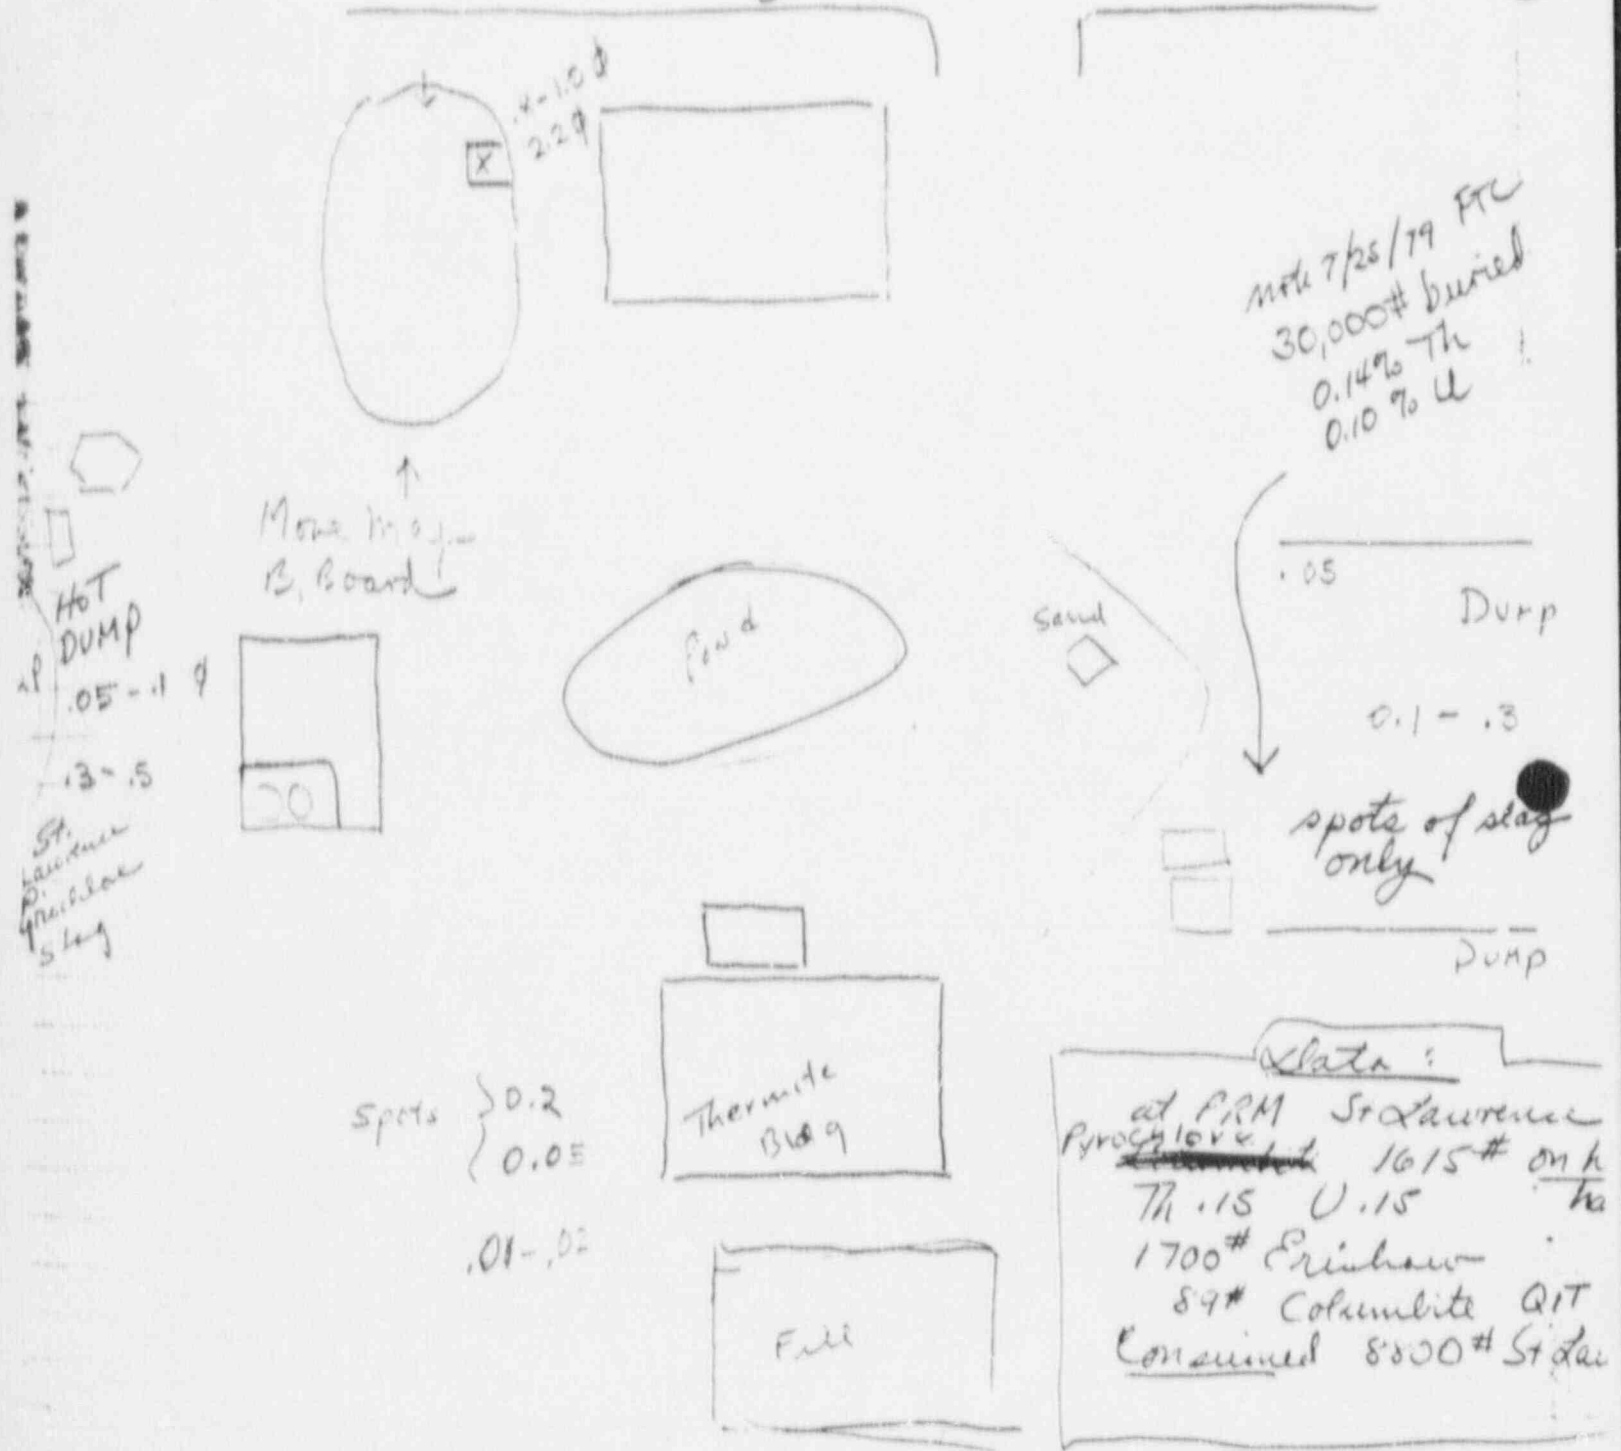 2.2
X
note 7/25/79 FTC
30,000# buried
0.14% Th
0.10 % U
B. Board
HOT
DUMP
.05 - .1
.3 - .5
St.
Lawrence
Slag
20
Pond
Sand
.05
Dump
0.1 - .3
spots of slag
only
Dump
Spots
0.2
0.05
.01 - .02
Thermite
Bldg
Fill
Data :
at PRM St Lawrence
Pyrochlore 1615# on h
Th .15 U .15 ha
1700#
89# Columbite QIT
Consumed 8800# St Law